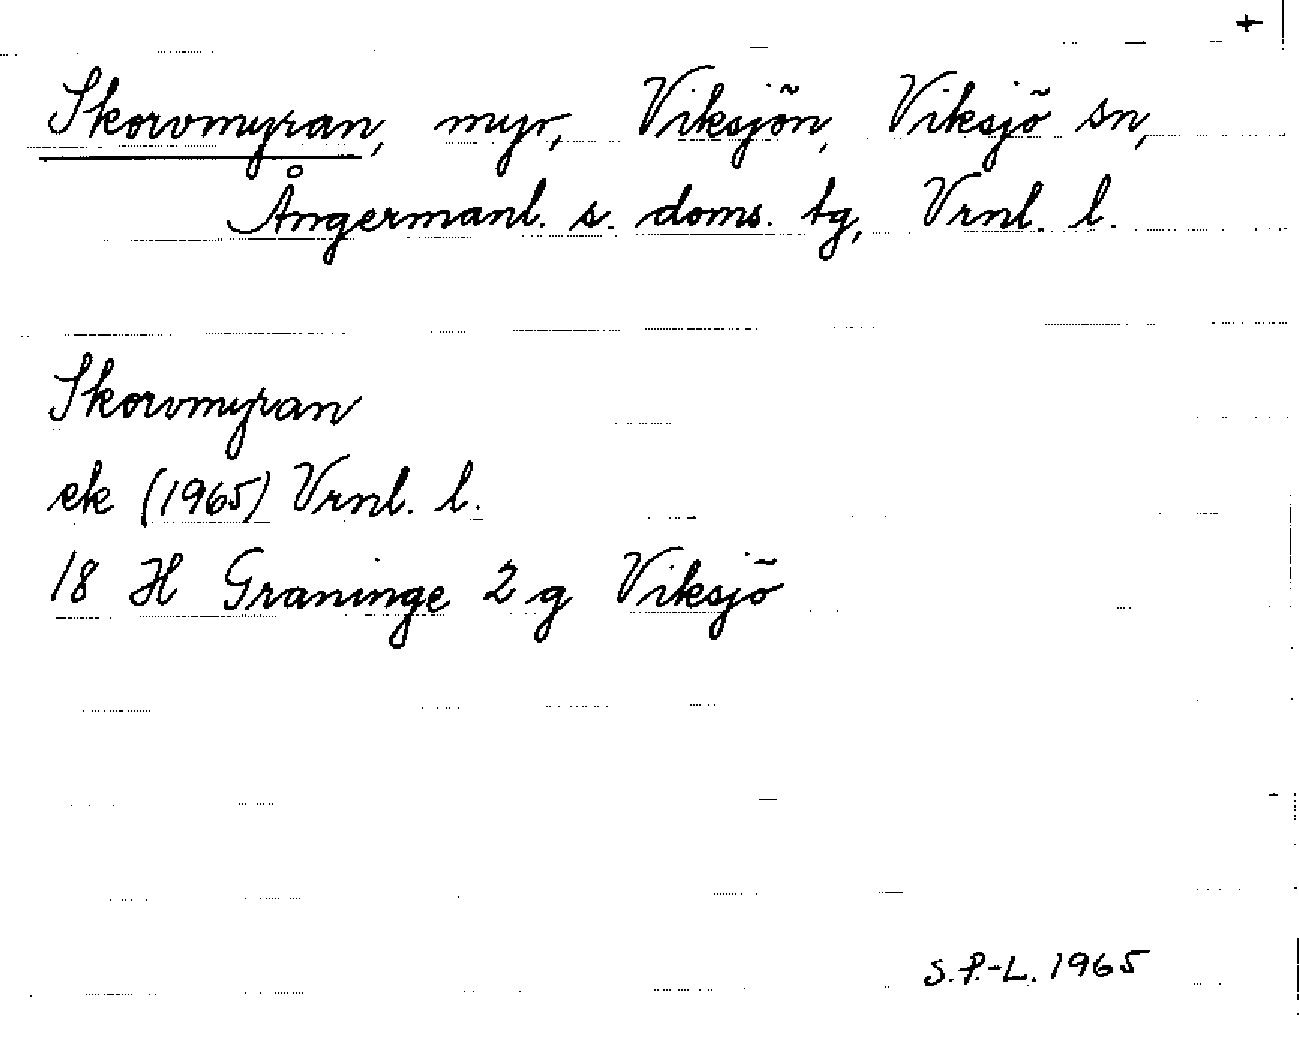 Skorvmyran, myr, Viksjön, Viksjö sn,
Ångermanl. s. doms. tg, Vrnl. l.
Skorvmyran
ek (1965) Vrnl. l.
18 H Graninge 2 g Viksjö
S.P.-L. 1965